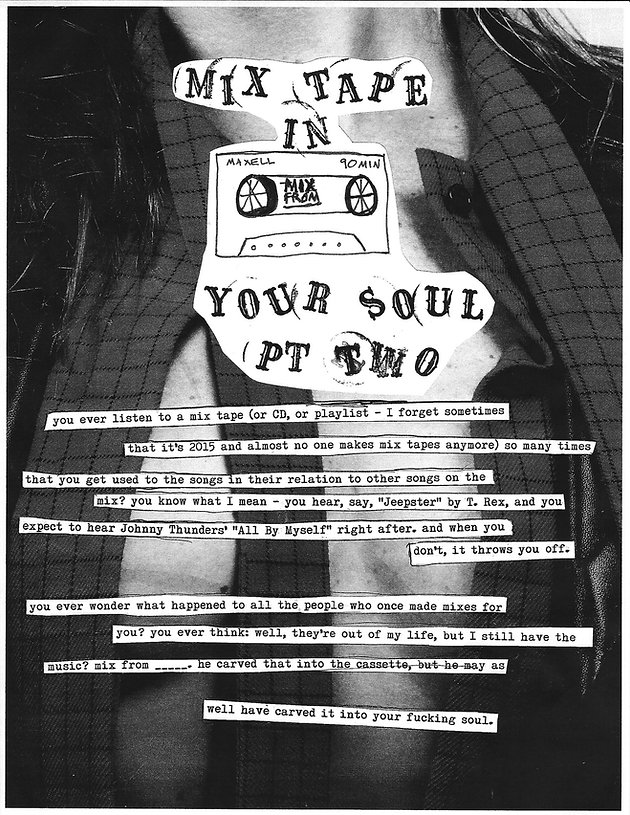 MIX TAPE
IN
MAXELL 90MIN
MIX
FROM
YOUR SOUL
(PT TWO
you ever listen to a mix tape (or CD, or playlist - I forget sometimes
that it's 2015 and almost no one makes mix tapes anymore) so many times
that you get used to the songs in their relation to other songs on the
mix? you know what I mean - you hear, say, "Jeepster" by T. Rex, and you
expect to hear Johnny Thunders' "All By Myself" right after. and when you
don't, it throws you off.
you ever wonder what happened to all the people who once made mixes for
you? you ever think: well, they're out of my life, but I still have the
music? mix from _____. he carved that into the cassette, but he may as
well have carved it into your fucking soul.